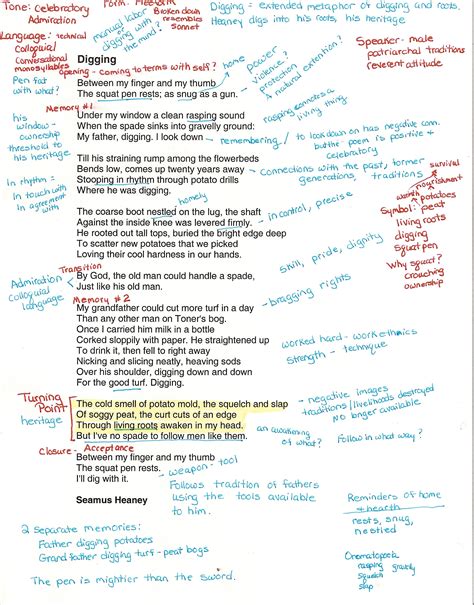 Tone: Celebratory
Admiration
Form: Freeform
Broken down
resembles
sonnet
Digging = extended metaphor of digging and roots.
Heaney digs into his roots, his heritage
Language: technical
Colloquial
Conversational
monosyllables
manual labor
or digging with
the mind?
Speaker - male
patriarchal traditions
reverent attitude
Digging
opening - coming to terms with self?
home
power
violence?
protection
A natural extension?
Pen fat
with what?
Between my finger and my thumb
The squat pen rests; as snug as a gun.
Memory #1
rasping connotes a
living thing
his
window -
ownership
threshold to
his heritage
Under my window a clean rasping sound
When the spade sinks into gravelly ground:
My father, digging. I look down
remembering
to look down on has negative conn.
but the poem is positive &
celebratory
Till his straining rump among the flowerbeds
Bends low, comes up twenty years away
Stooping in rhythm through potato drills
Where he was digging.
Connections with the past, former
generations, traditions
survival
nourishment
In rhythm =
in touch with
In agreement
with
homely
warmth
potatoes
Symbol: peat
living roots
digging
squat pen
The coarse boot nestled on the lug, the shaft
Against the inside knee was levered firmly.
He rooted out tall tops, buried the bright edge deep
To scatter new potatoes that we picked
Loving their cool hardness in our hands.
in control, precise
skill, pride, dignity
Why squat?
crouching
ownership
Transition
Admiration
Colloquial
language
By God, the old man could handle a spade,
Just like his old man.
bragging rights
Memory #2
My grandfather could cut more turf in a day
Than any other man on Toner's bog.
Once I carried him milk in a bottle
Corked sloppily with paper. He straightened up
To drink it, then fell to right away
Nicking and slicing neatly, heaving sods
Over his shoulder, digging down and down
For the good turf. Digging.
worked hard - work ethnics
strength - technique
Turning
Point
heritage
The cold smell of potato mold, the squelch and slap
Of soggy peat, the curt cuts of an edge
Through living roots awaken in my head.
But I've no spade to follow men like them.
negative images
traditions/livelihoods destroyed
No longer available
an awakening
of what?
Follow in what way?
Closure - Acceptance
Between my finger and my thumb
The squat pen rests.
I'll dig with it.
weapon - tool
Follows tradition of fathers
using the tools available
to him.
Seamus Heaney
Reminders of home
& hearth
nests, snug,
nestled
2 separate memories:
Father digging potatoes
Grand father digging turf - peat bogs
The pen is mightier than the sword.
Onomatopoeia
rasping gravelly
squelch
slap